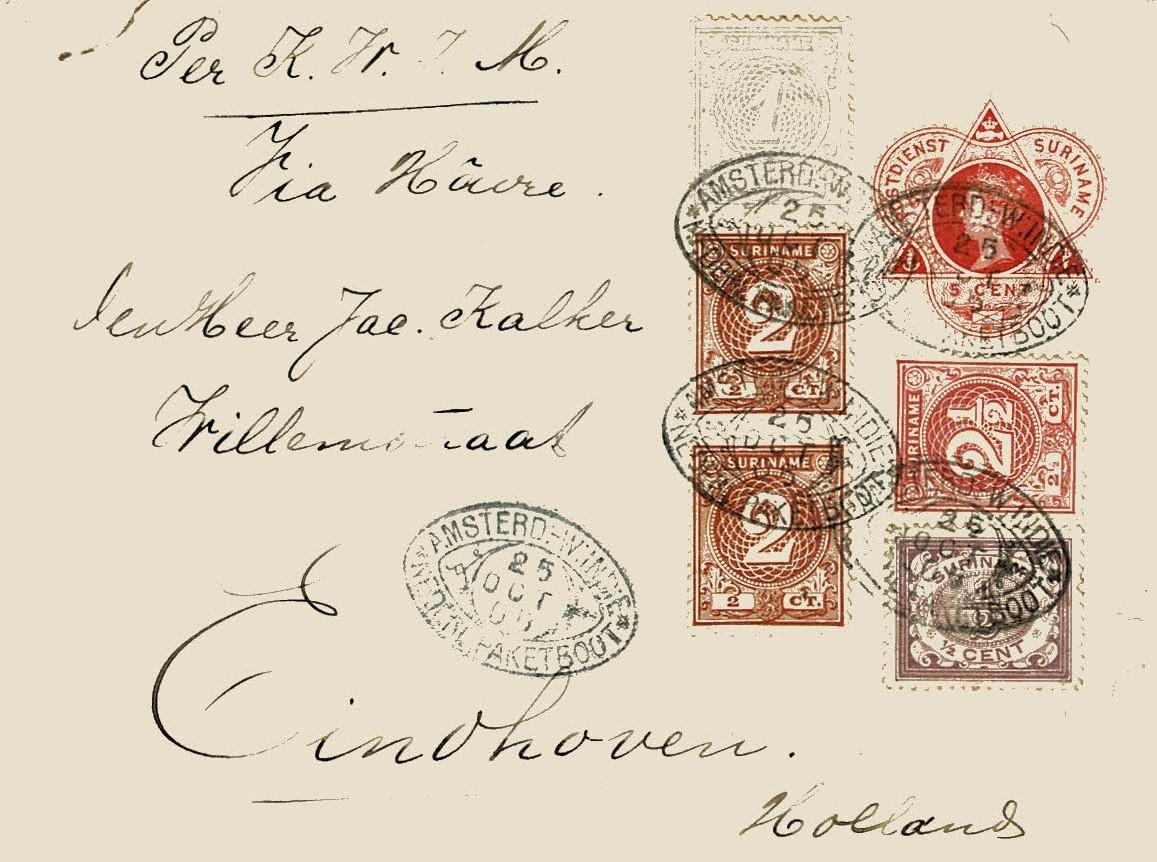 Per K. W. I. M.
Via Hâvre.
den Heer Jac. Kalker
Willemstraat
Eindhoven.
Holland
SURINAME
1
POSTDIENST SURINAME
5 CENT
SURINAME
2
2 CT.
SURINAME
2
2 CT.
SURINAME
2½
2½ CT.
SURINAME
½
½ CENT
AMSTERD=W.INDIE
25
OCT
NEDERL. PAKETBOOT
AMSTERD=W.INDIE
25
OCT
PAKETBOOT
AMSTERD=W.INDIE
25
OCT
NEDERL. PAKETBOOT
W.INDIE
25
OCT
PAKETBOOT
AMSTERD=W.INDIE
25
OCT
NEDERL. PAKETBOOT